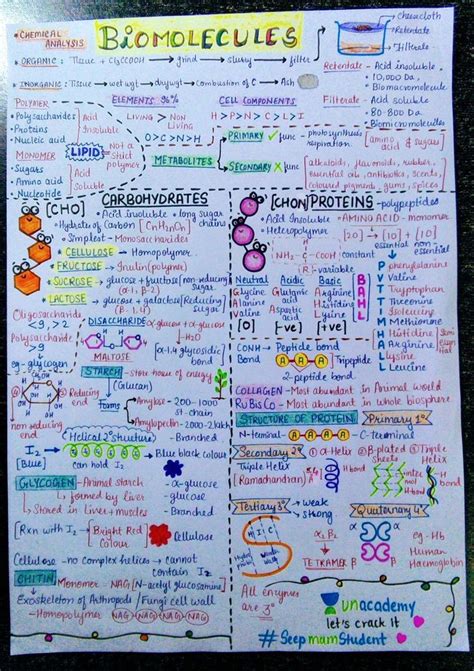 • CHEMICAL ANALYSIS
BIOMOLECULES
cheesecloth
Retentate
Filterate
• ORGANIC: Tissue + Cl3CCOOH → grind → slurry → filter
• INORGANIC: Tissue → wet wgt → dry wgt → Combustion of C → Ash
Retentate - Acid insoluble
10,000 Da
Biomacromolecule
Filterate - Acid soluble
80-800 Da
Biomicromolecules
POLYMER
• Polysaccharides
• Proteins
• Nucleic acid
Acid Insoluble
MONOMER
• Sugars
• Amino acid
• Nucleotide
Acid Soluble
LIPID
Not a strict polymer
ELEMENTS 96%
Living > Non Living
O > C > N > H
CELL COMPONENTS
H > P > N > C > L > I
METABOLITES
PRIMARY ✓ func - photosynthesis respiration [amino acid & sugars]
SECONDARY X func [alkaloids, flavonoids, rubber, essential oils, antibiotics, scents, coloured pigments, gums, spices]
CARBOHYDRATES
[CHO]
• Acid insoluble • long sugar chains
• Hydrate of Carbon [CnH2nOn]
• Simplest - Monosaccharides
CELLULOSE → Homopolymer
FRUCTOSE → Inulin (polymer)
SUCROSE → glucose + fructose (non-reducing sugar)
LACTOSE → glucose + galactose [Reducing] sugar
(β-1,4)
Oligosaccharide
<9, >2
Polysaccharide
>9
eg - glycogen
DISACCHARIDE
α-glucose + α-glucose
-H2O
MALTOSE
[α-1,4 glycosidic] bond
STARCH → store house of energy
(Glucan)
non reducing end
Reducing end
2 forms
Amylose - 200-1000
St-chain
Amylopectin - 2000-2 lakh
- Branched
Helical 2° structure
I2
[Blue]
can hold I2
Blue black colour
GLYCOGEN - Animal starch
→ formed by liver
→ Stored in liver + muscles
- α-glucose
- glucose
- Branched
[Rxn with I2] → Bright Red Colour
Cellulose
Cellulose - no complex helices → cannot contain I2
CHITIN Monomer - NAG [N-acetyl glucosamine]
→ Exoskeleton of Arthropods / Fungi cell wall
- Homopolymer NAG NAG NAG NAG
[CHON] PROTEINS - polypeptides
• Acid Insoluble
• Heteropolymer
• AMINO ACID - monomer
[20] → [10] + [10]
essential
non-essential
NH2 - C - COOH
H
R
constant
R - variable
Neutral
Glycine
Alanine
Valine
[0]
Acidic
Glutamic acid
Aspartic acid
[-ve]
Basic
Arginine
Histidine
Lysine
[+ve]
BAHL
PVT TIM HALL
Phenylalanine
Valine
Tryptophan
Threonine
Isoleucine
Methionine
Histidine
Arginine
Lysine
Leucine
CONH - Peptide bond
Bond
A A A Tripeptide
2-peptide bond
COLLAGEN - Most abundant in Animal world
RUBISCO - Most abundant in whole biosphere
STRUCTURE OF PROTEIN
Primary 1°
N-terminal - A A A A - C-terminals
Secondary 2°
① α-Helix ② β-plated sheets ③ Triple Helix
Triple Helix
[Ramachandran]
H bond
H bond
Tertiary 3°
→ weak
→ strong
Quaternary 4°
α1 β2
α β
TETRAMER
eg - Hb
Human Haemoglobin
All enzymes are 3°
unacademy
let's crack it
#SeepmamStudent